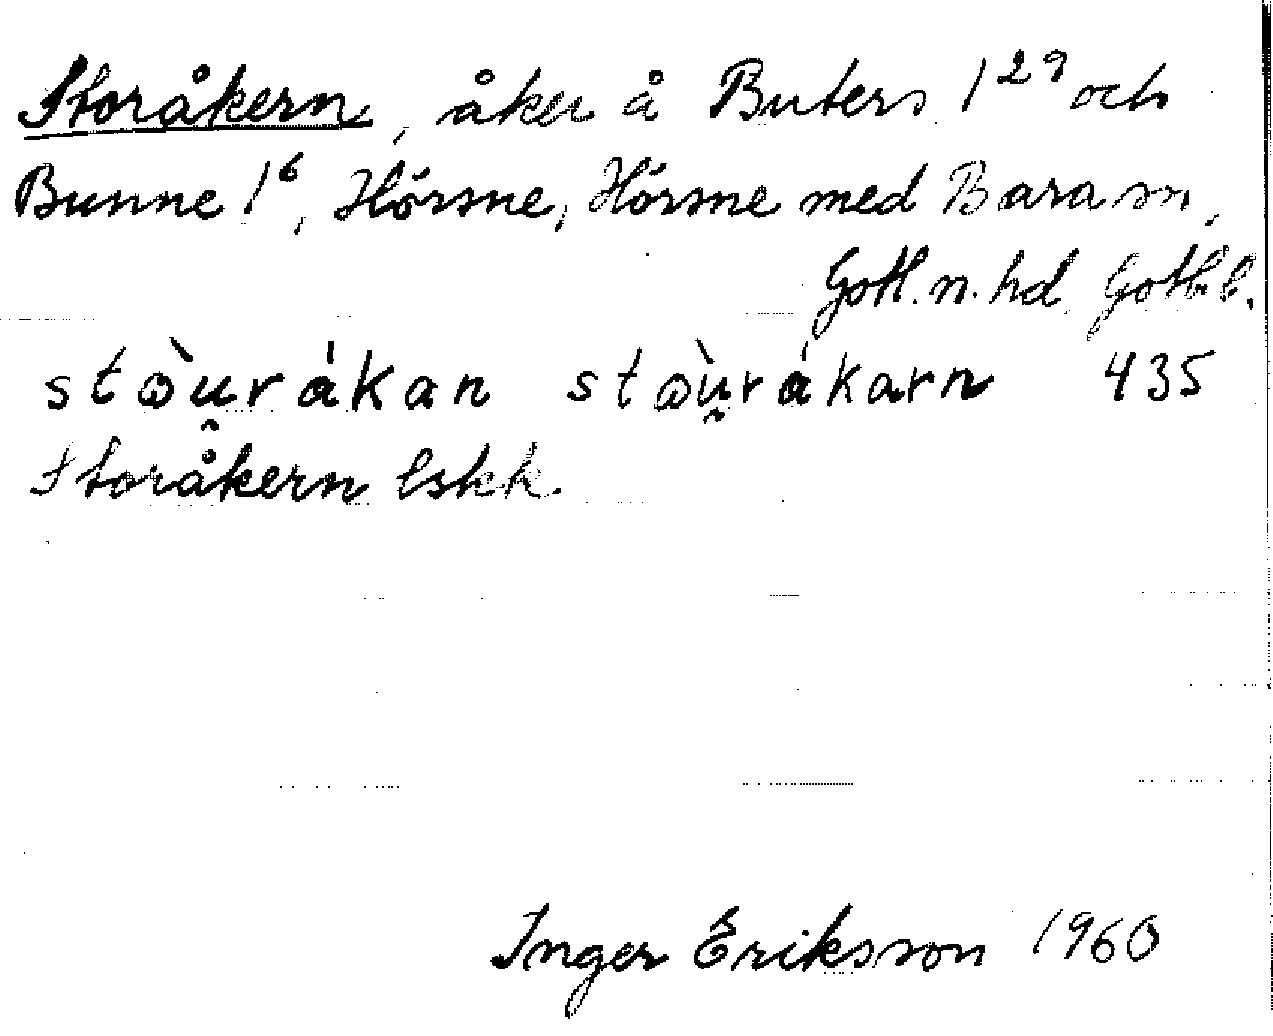 Storåkern, åker å Buters 1²⁹ och
Bunne 1⁶, Hörsne, Hörsne med Bara sn,
Gotl. n. hd. Gotl. l.
stòu̯rákan stòu̯rákarn 435
Storåkern lskk.
Inger Eriksson 1960